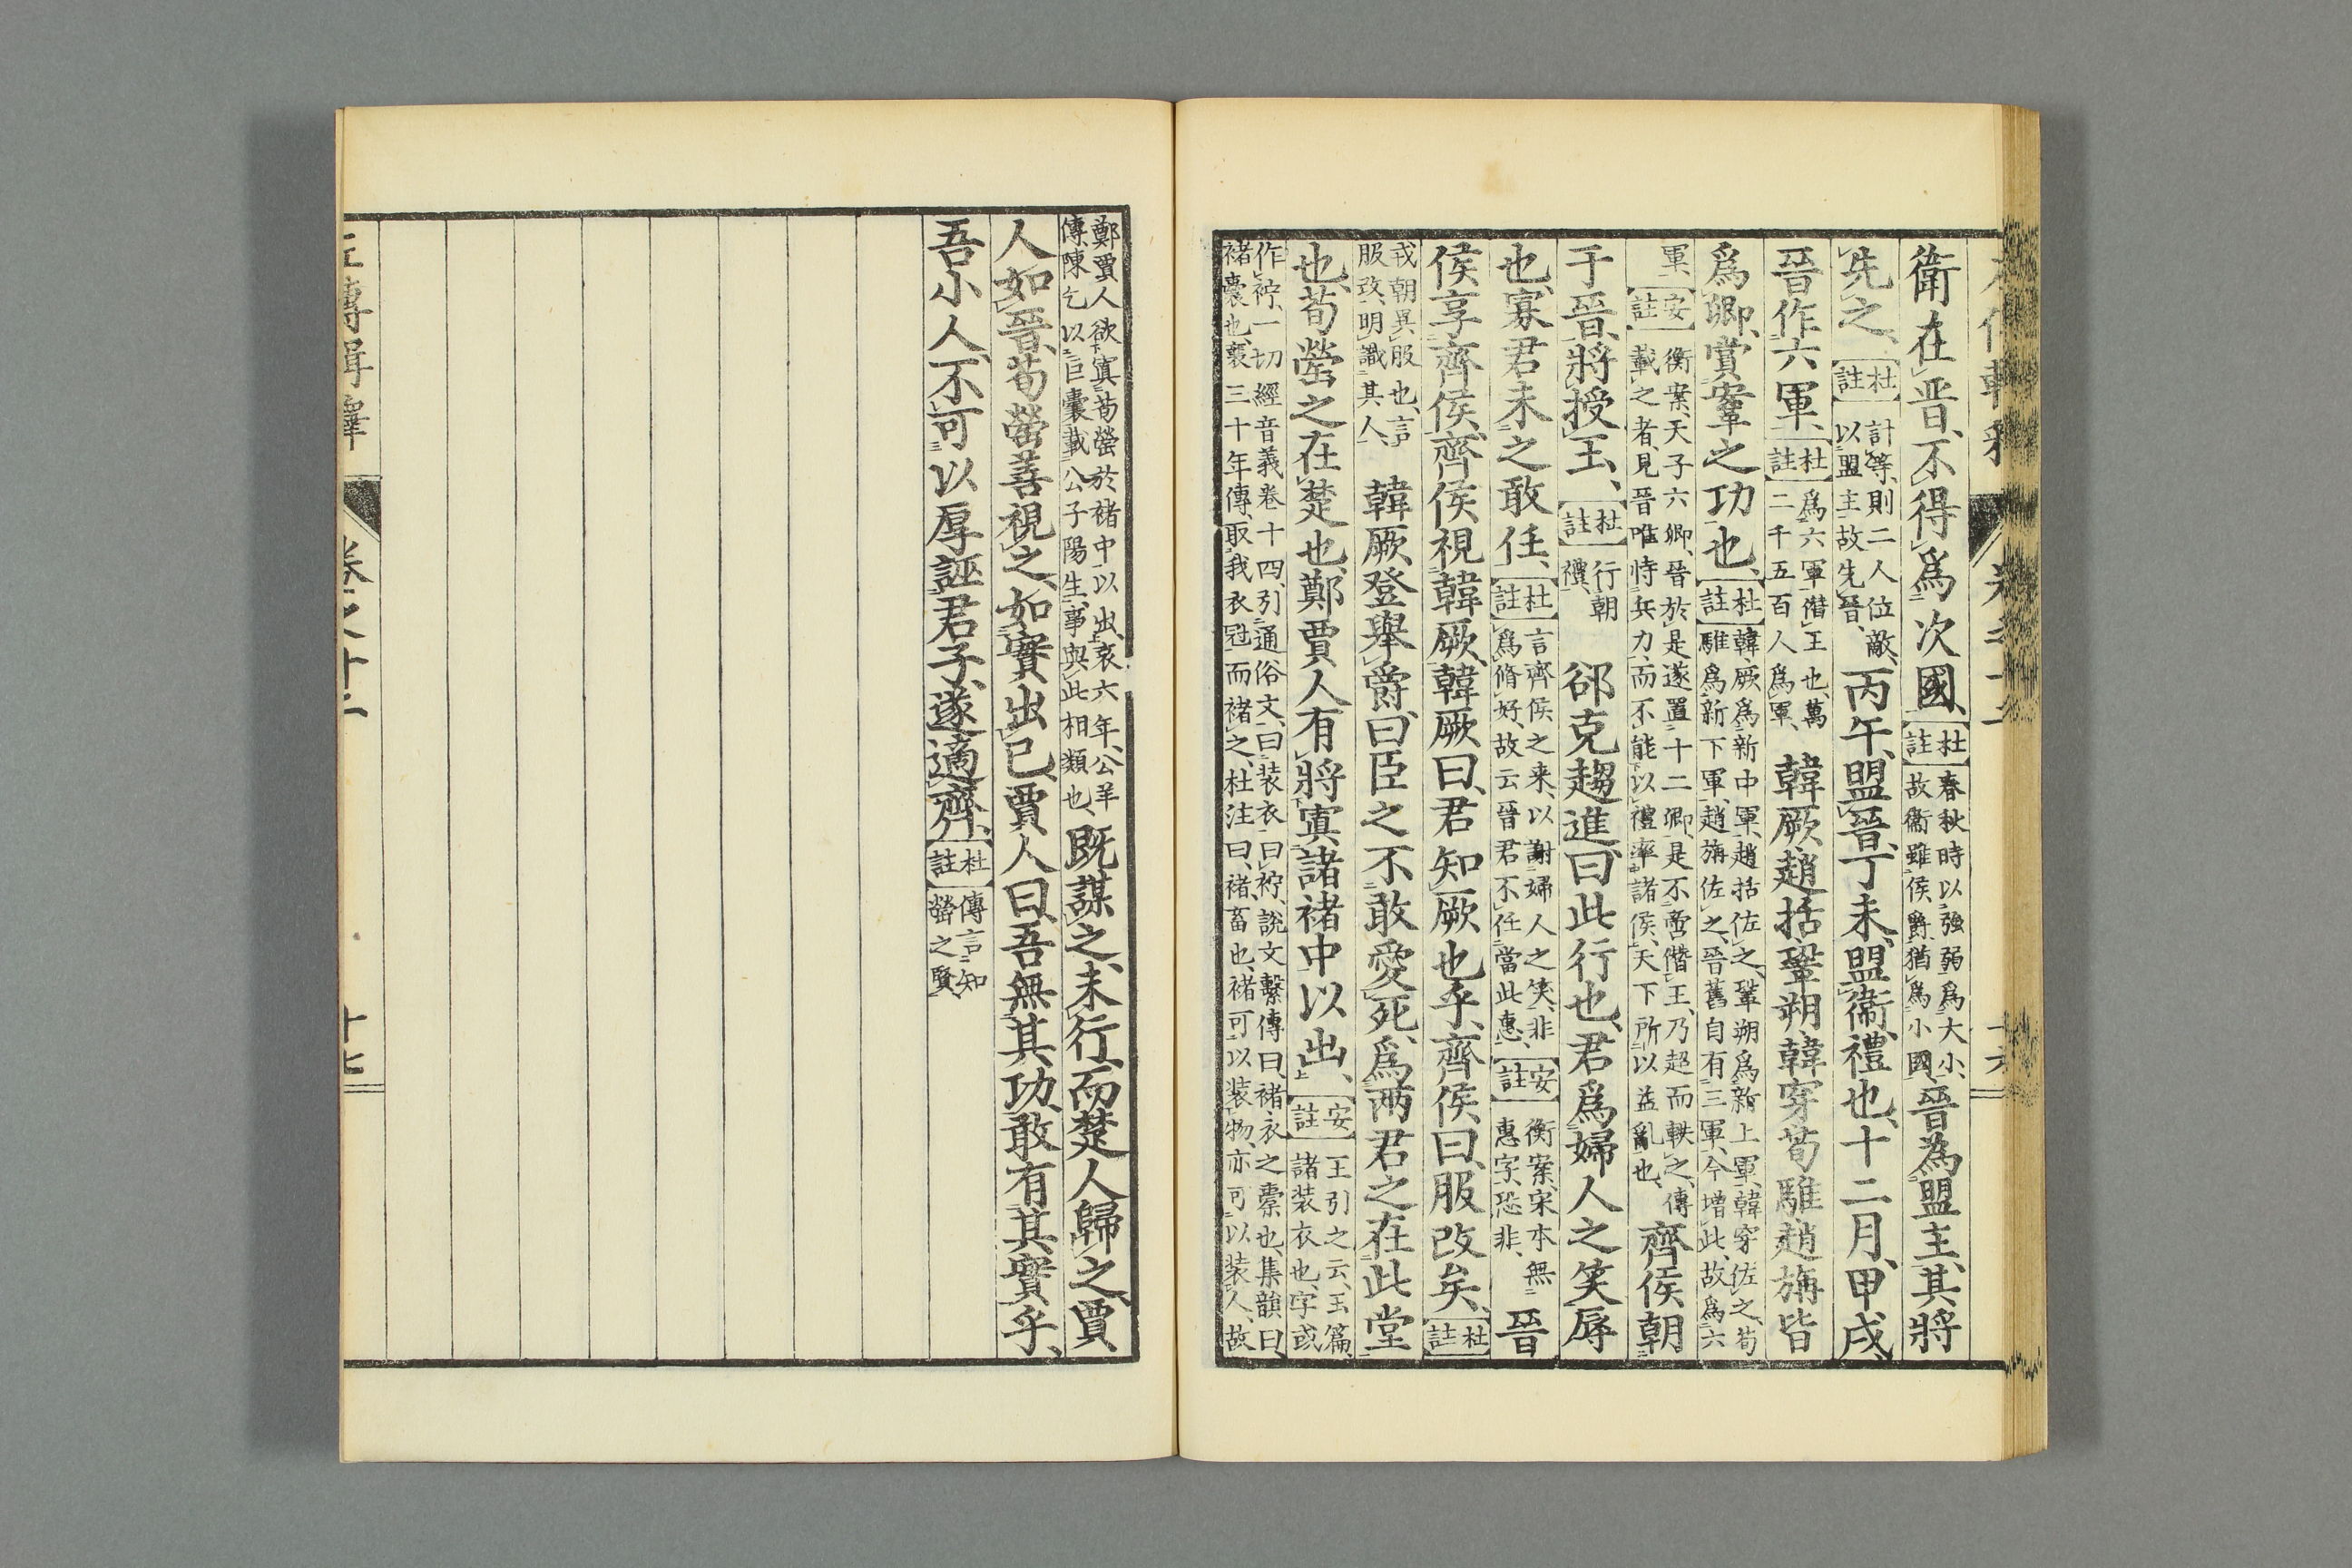 衛在晋、不得爲次國、[杜註]春秋時以強弱爲大小、故衞雖侯爵、猶爲小國、晉為盟主、其將
先之、[杜註]計等、則二人位敵、以盟主故先晉、丙午、盟晉、丁未、盟衞、禮也、十二月、甲戌、
晉作六軍、[杜註]爲六軍僭王也、萬二千五百人爲軍、韓厥趙括鞏朔韓穿荀騅趙旃皆
爲卿、賞鞌之功也、[杜註]韓厥爲新中軍、趙括佐之、鞏朔爲新上軍、韓穿佐之、荀騅爲新下軍、趙旃佐之、晉舊自有三軍、今增此、故爲六
軍、[安註]衡案、天子六卿、晉於是遂置十二卿、是不啻僭王、乃超而軼之、傳載之者、見晉唯恃兵力、而不能以禮率諸侯、天下所以益亂也、齊侯朝
于晉、將授玉、[杜註]行朝禮、郤克趨進曰此行也、君爲婦人之笑辱
也、寡君未之敢任、[杜註]言齊侯之来、以謝婦人之笑、非爲脩好、故云晉君不任當此惠、[安註]衡案、宋本無惠字、恐非、晉
侯享齊侯、齊侯視韓厥、韓厥曰、君知厥也乎、齊侯曰、服改矣、[杜註]
戎朝異服也、言服改、明識其人、韓厥登舉爵曰、臣之不敢愛死、爲兩君之在此堂
也、荀罃之在楚也、鄭賈人有將寘諸褚中以出、[安註]王引之云、玉篇、諸装衣也、字或
作䘢、一切經音義卷十四、引通俗文曰、装衣曰䘢、說文繫傳曰、褚、衣之橐也、集韻曰、褚、囊也、襄三十年傳、取我衣冠而褚之、杜注曰、褚、畜也、褚可以装物、亦可以装人、故
鄭賈人欲寘荀罃於褚中以出、哀六年、公羊傳、陳乞以巨囊載公子陽生、事與此相類也、既謀之、未行、而楚人歸之、賈
人如晉、荀罃善視之、如實出己、賈人曰、吾無其功、敢有其實乎、
吾小人、不可以厚誣君子、遂適齊、[杜註]傳言知罃之賢、
左傳輯釋 卷之十二 十七